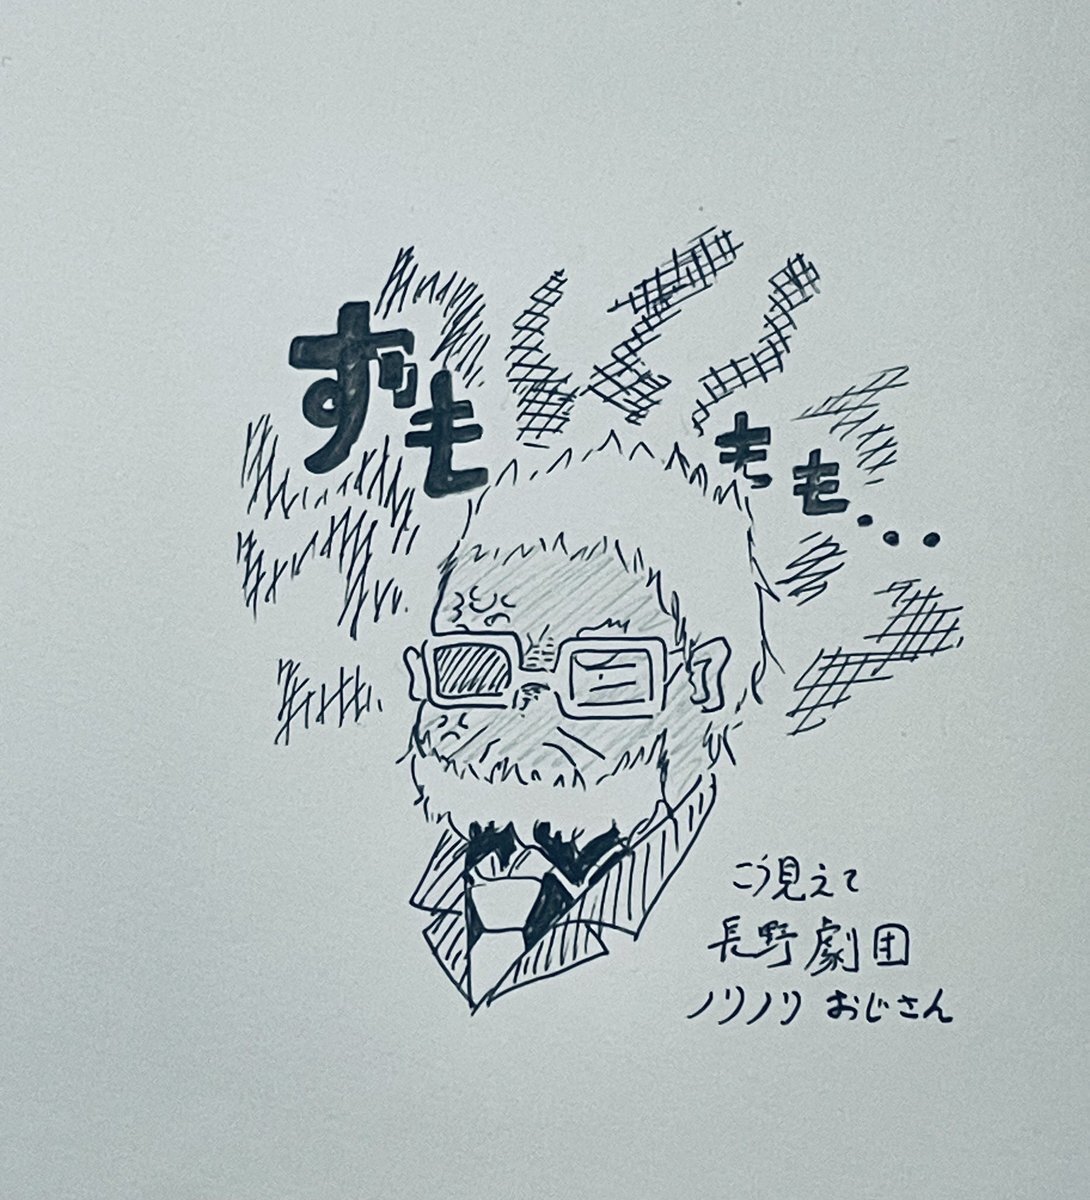 ずも
もも...
こう見えて
長野劇団
ノリノリおじさん